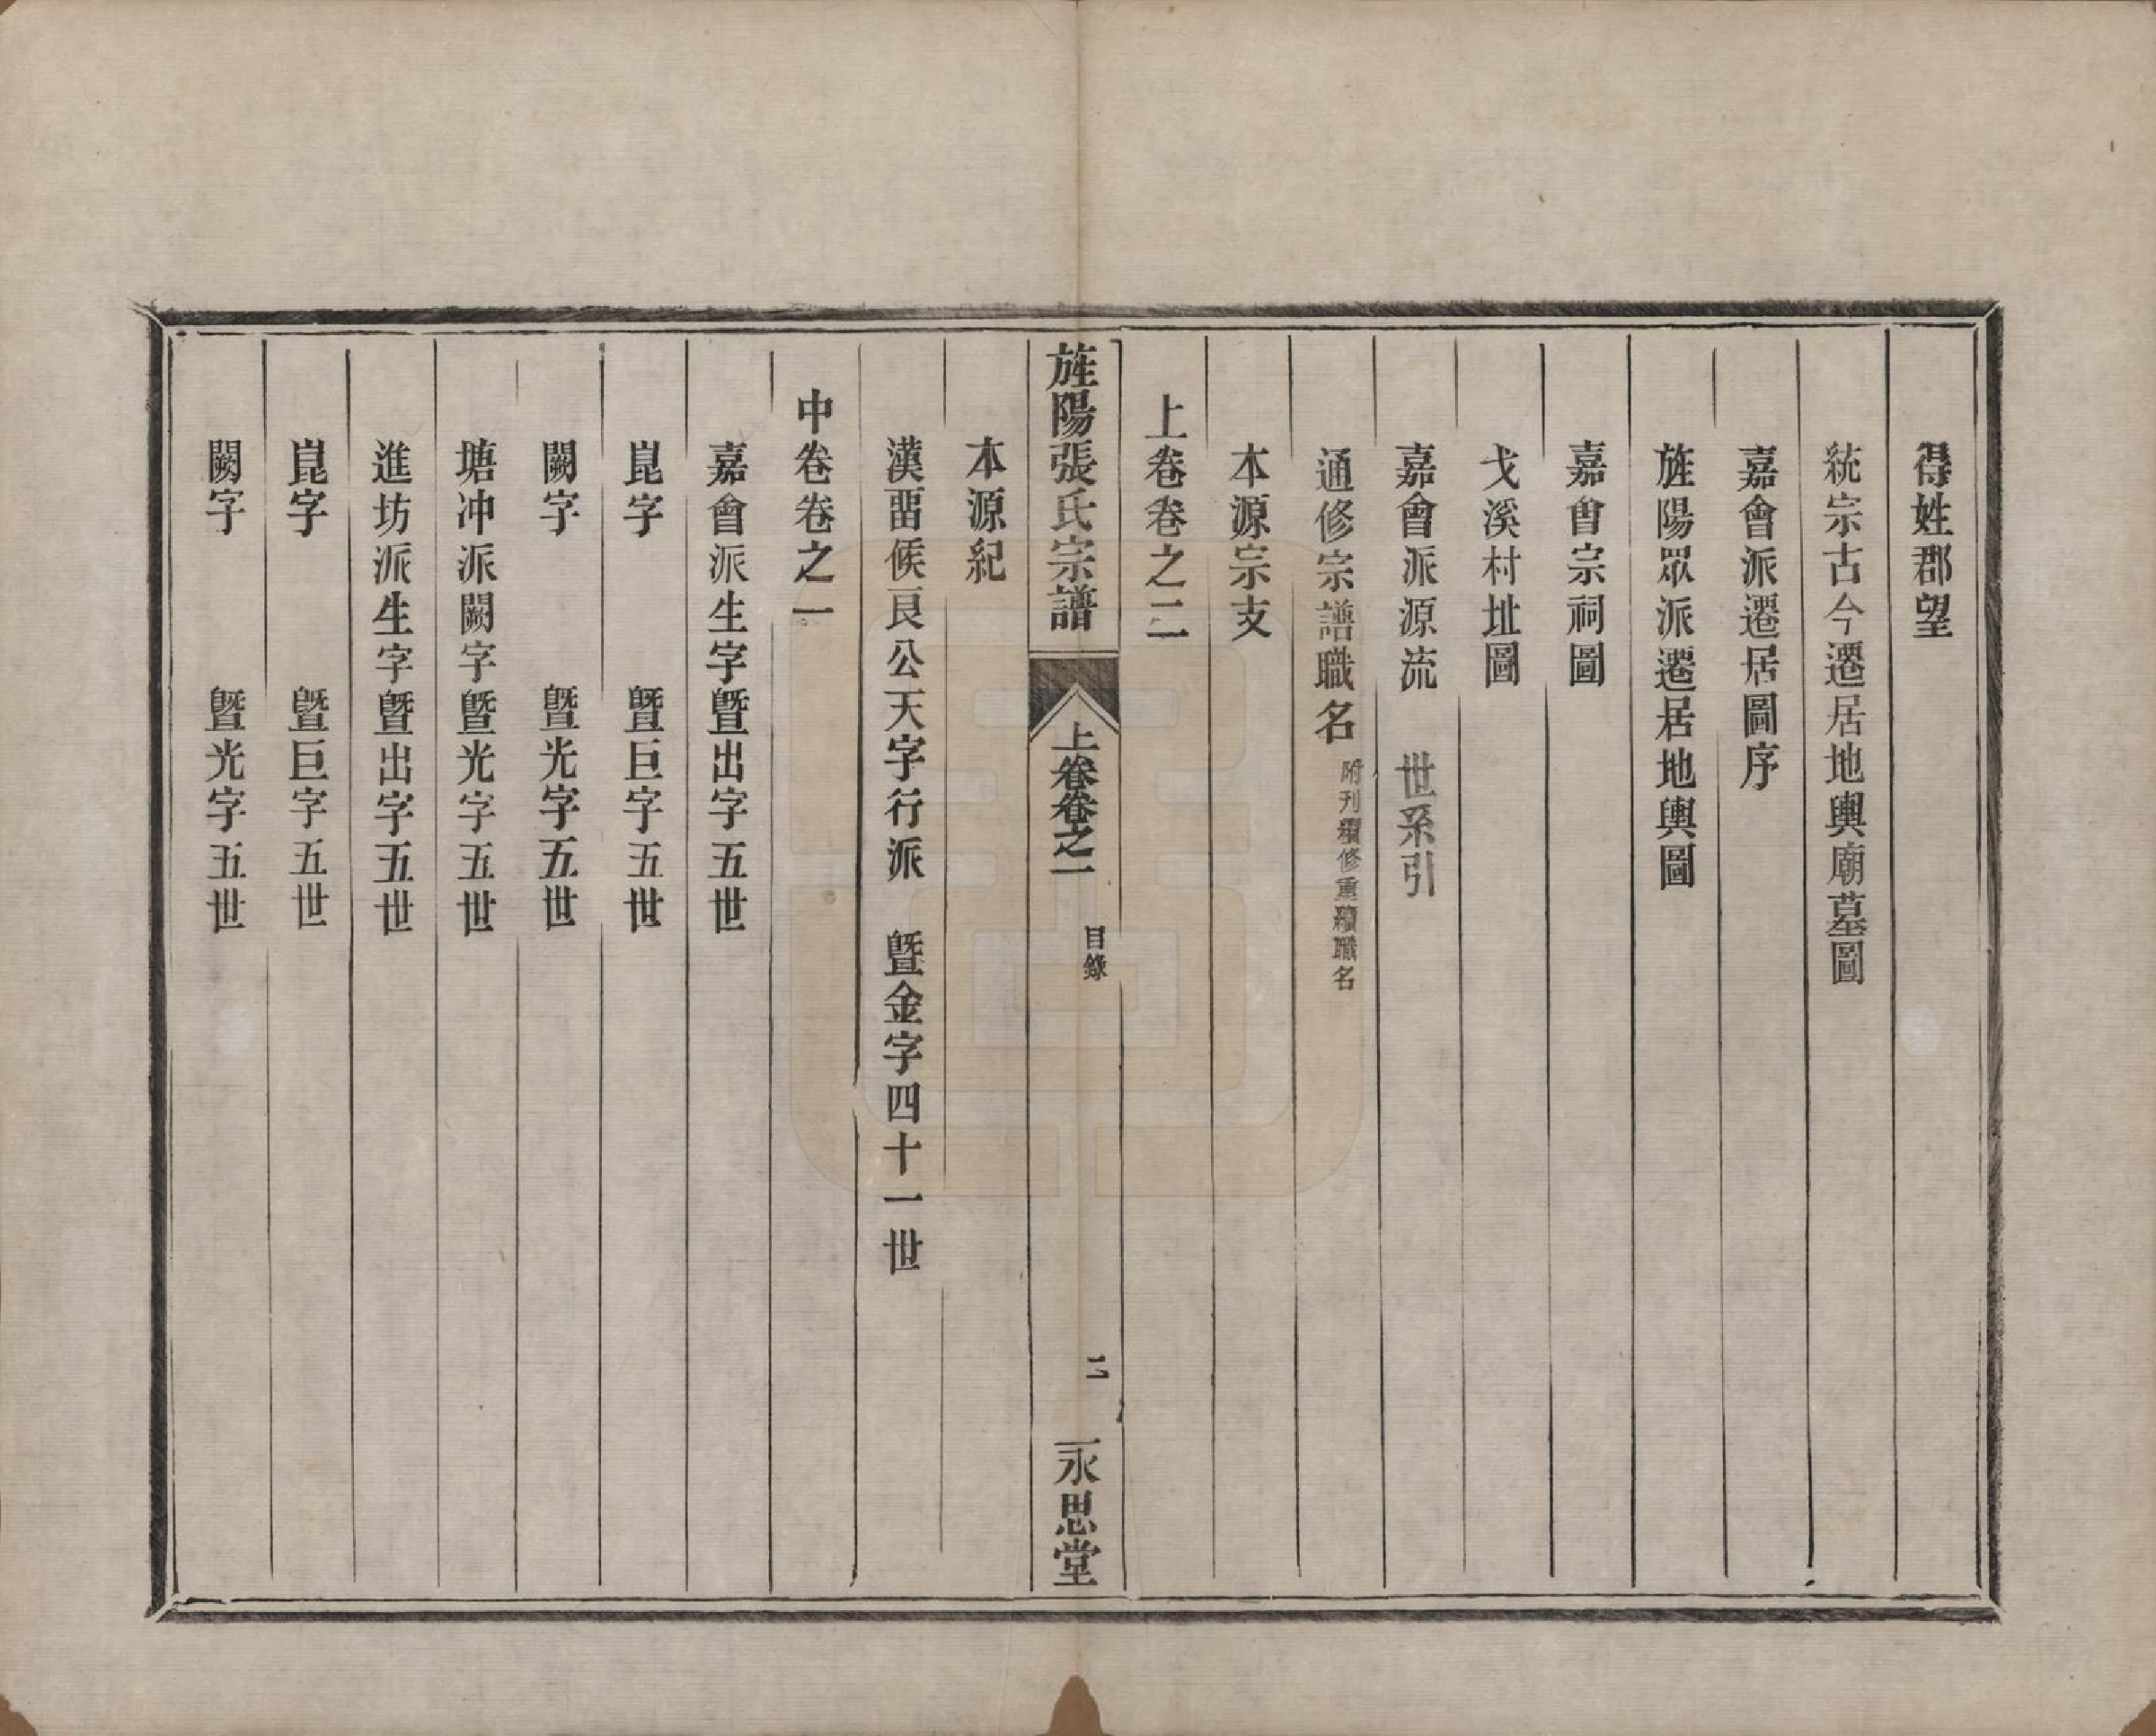 得姓郡望
統宗古今遷居地輿廟墓圖
嘉會派遷居圖序
旌陽眾派遷居地輿圖
嘉會宗祠圖
戈溪村址圖
嘉會派源流　世系引
通修宗譜職名　附刊續修重續職名
本源宗支
上卷卷之二
旌陽張氏宗譜　上卷卷之一　目錄　二　永思堂
本源紀
漢畱候良公天字行派　暨金字四十一世
中卷卷之一
嘉會派生字暨出字五世
崑字　暨巨字五世
闕字　暨光字五世
塘冲派闕字暨光字五世
進坊派生字暨出字五世
崑字　暨巨字五世
闕字　暨光字五世